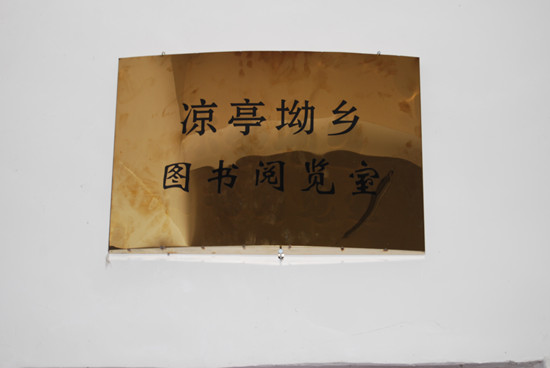 凉亭坳乡
图书阅览室